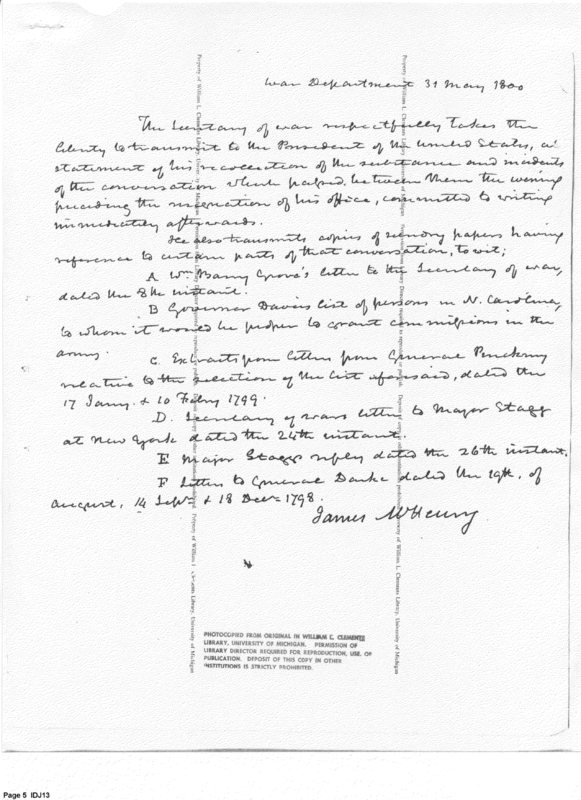 War Department 31 May 1800
The Secretary of war respectfully takes the
liberty to transmit to the President of the United States, a
statement of his recollection of the substance and incidents
of the conversation which passed between them the evening
preceding the resignation of his office, committed to writing
immediately afterwards.
He also transmits copies of sundry papers having
reference to certain parts of that conversation, to wit;
A Wm Barry Grove's letter to the Secretary of war,
dated the 8th instant.
B Governor Davies list of persons in N. Carolina,
to whom it would be proper to grant commissions in the
army.
C. Extracts from letters from General Pinckney
relative to the selection of the list aforesaid, dated the
17 Jany. & 10 Feby 1799.
D. Secretary of wars letter to Major Stagg
at New York dated the 24th instant.
E Major Staggs reply dated the 26th instant.
F Letters to General Darke dated the 19th. of
August, 14 Sepr. & 18 Decr 1798.
James McHenry
Property of William L. Clements Library, University of Michigan
Property of William L. Clements Library, University of Michigan
PHOTOCOPIED FROM ORIGINAL IN WILLIAM L. CLEMENTS
LIBRARY, UNIVERSITY OF MICHIGAN. PERMISSION OF
LIBRARY DIRECTOR REQUIRED FOR REPRODUCTION, USE, OF
PUBLICATION. DEPOSIT OF THIS COPY IN OTHER
INSTITUTIONS IS STRICTLY PROHIBITED.
Page 5 IDJ13